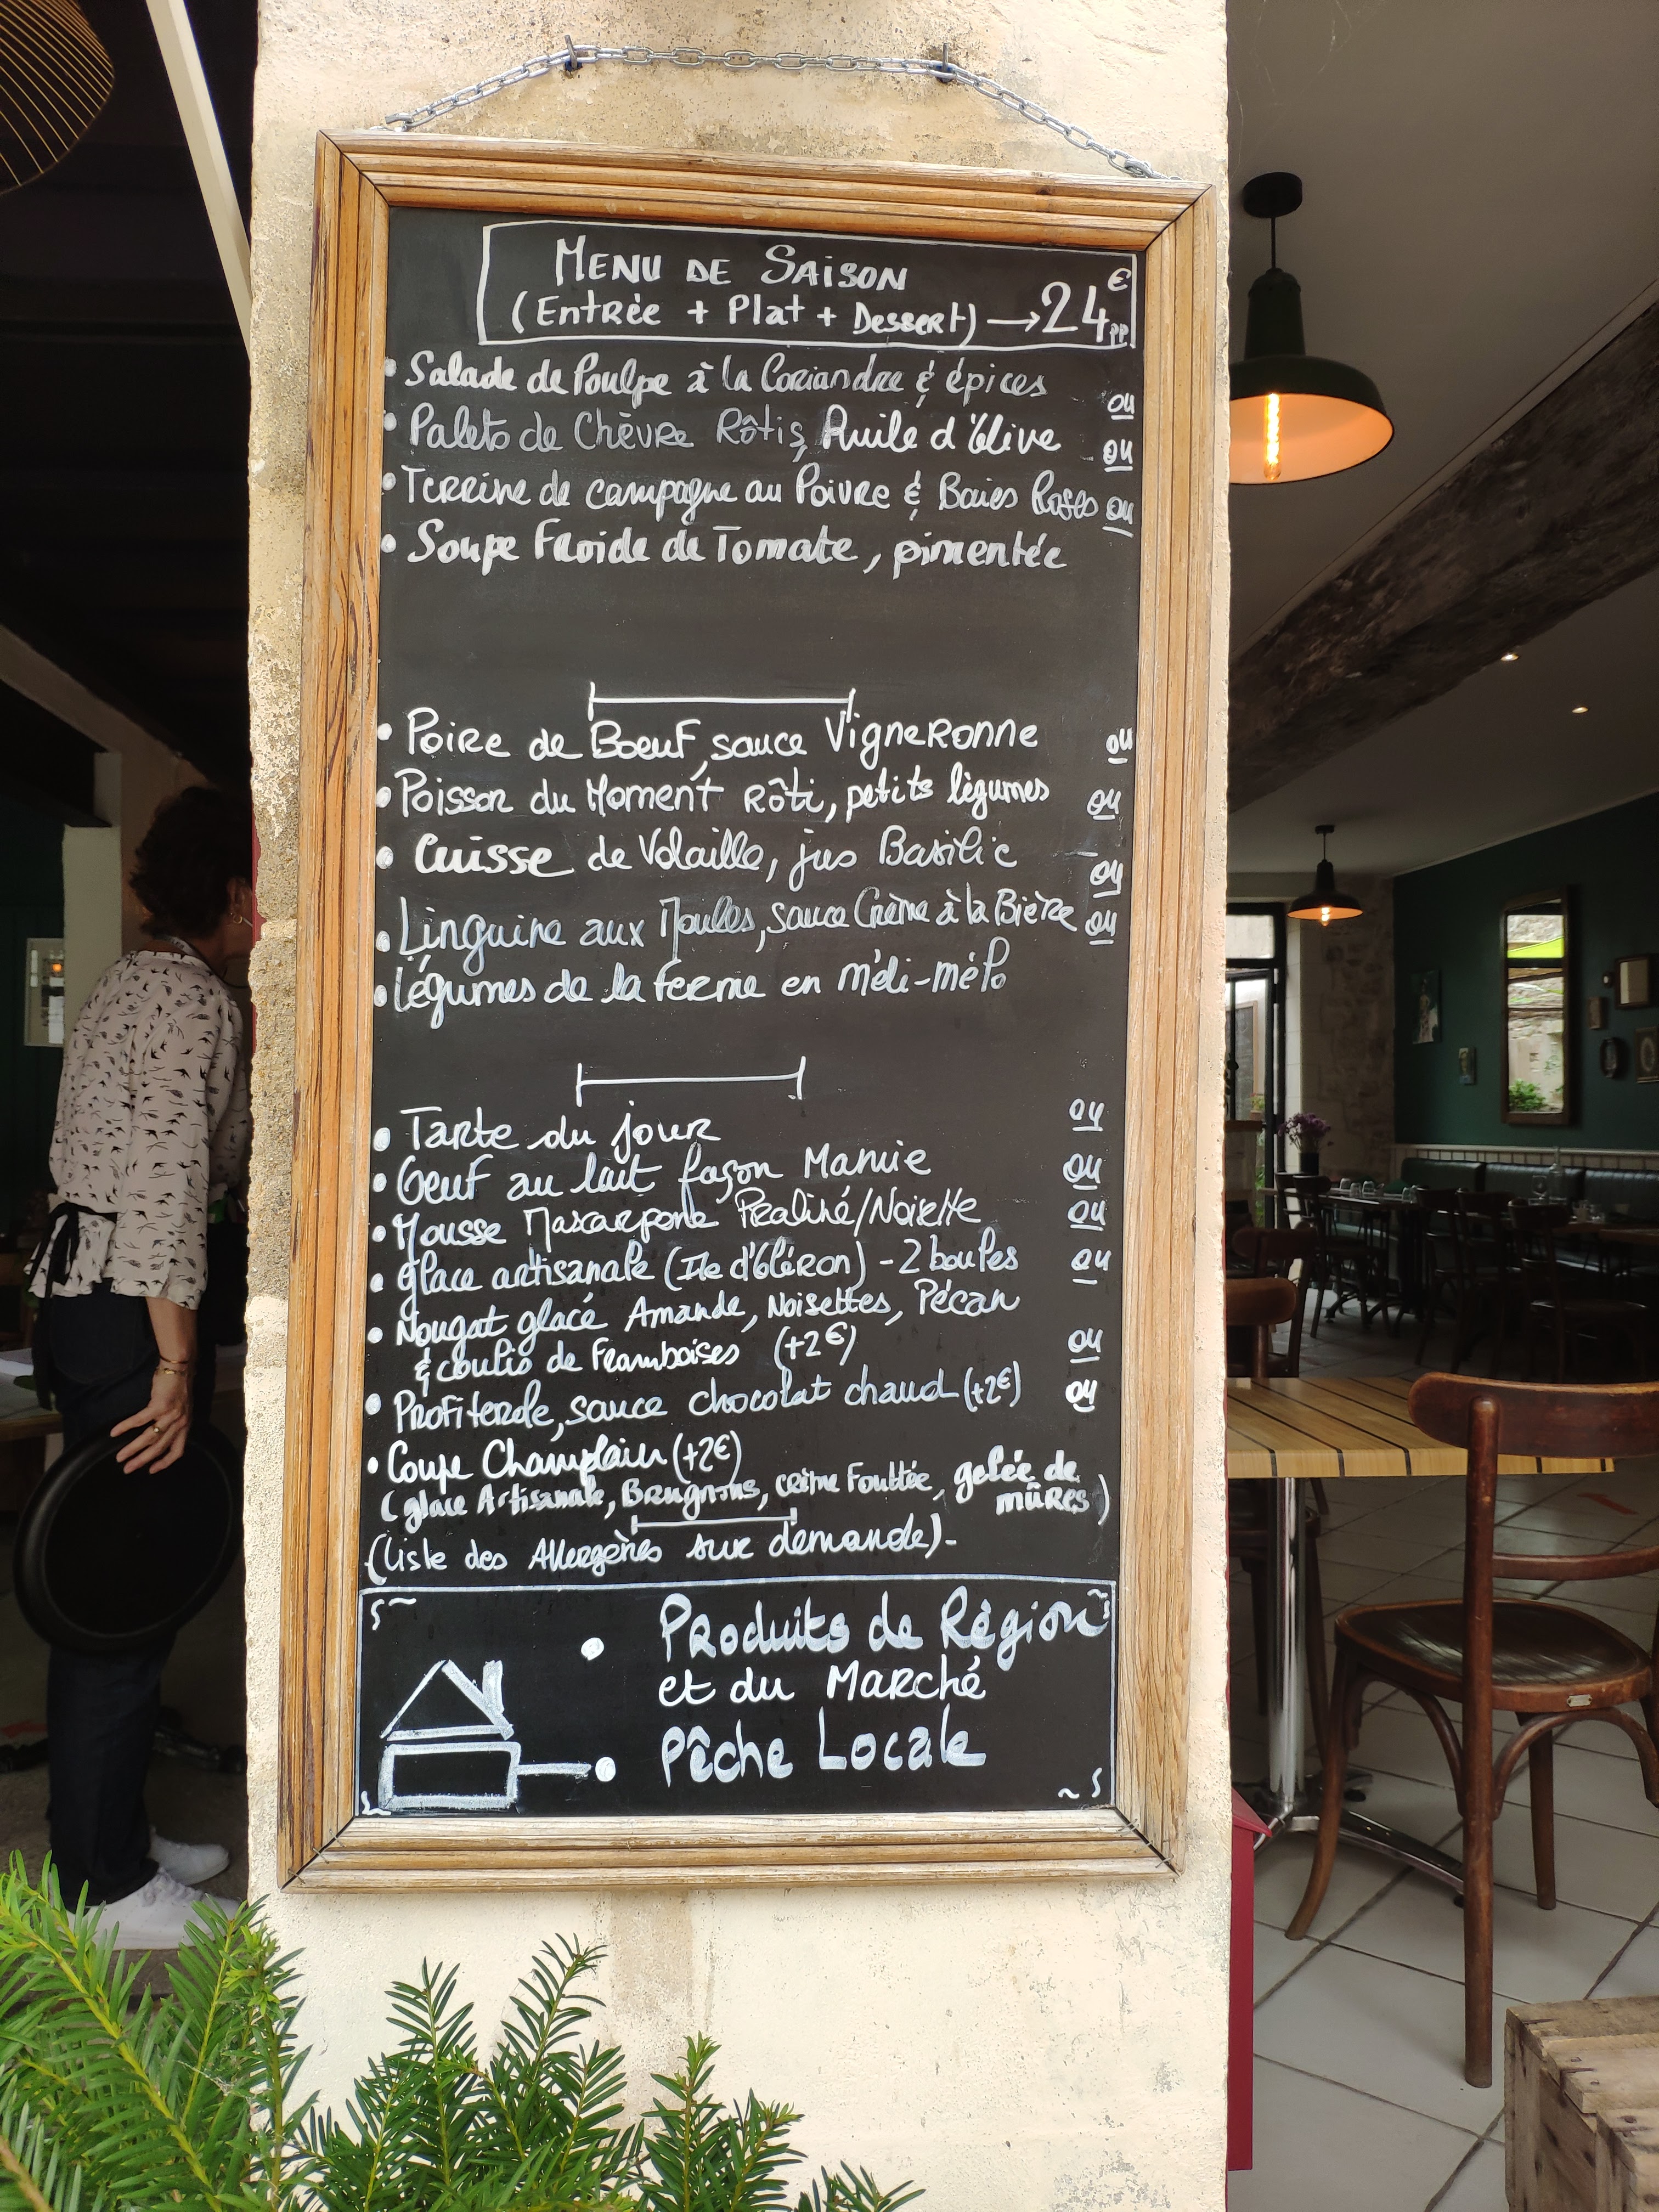 MENU DE SAISON
(Entrée + Plat + Dessert) → 24€ PP
• Salade de Poulpe à la Coriandre & épices ou
• Palets de Chèvre Rôtis, Huile d'Olive ou
• Terrine de campagne au Poivre & Baies Roses ou
• Soupe Froide de Tomate, pimentée
• Poire de Boeuf, sauce Vigneronne ou
• Poisson du Moment rôti, petits légumes ou
• Cuisse de Volaille, jus Basilic ou
• Linguine aux Moules, sauce Crème à la Bière ou
• Légumes de la ferme en méli-mélo
• Tarte du jour ou
• Oeuf au lait façon Mamie ou
• Mousse Mascarpone Praliné/Noisette ou
• glace artisanale (Ile d'Oléron) - 2 boules ou
• Nougat glacé Amande, Noisettes, Pécan
& coulis de Framboises (+2€) ou
• Profiterole, sauce chocolat chaud (+2€) ou
• Coupe Champlain (+2€)
(glace Artisanale, Brugnons, crème Fouttée, gelée de
mûres)
(liste des Allergènes sur demande)-
• Produits de Région
et du Marché
• Pêche Locale